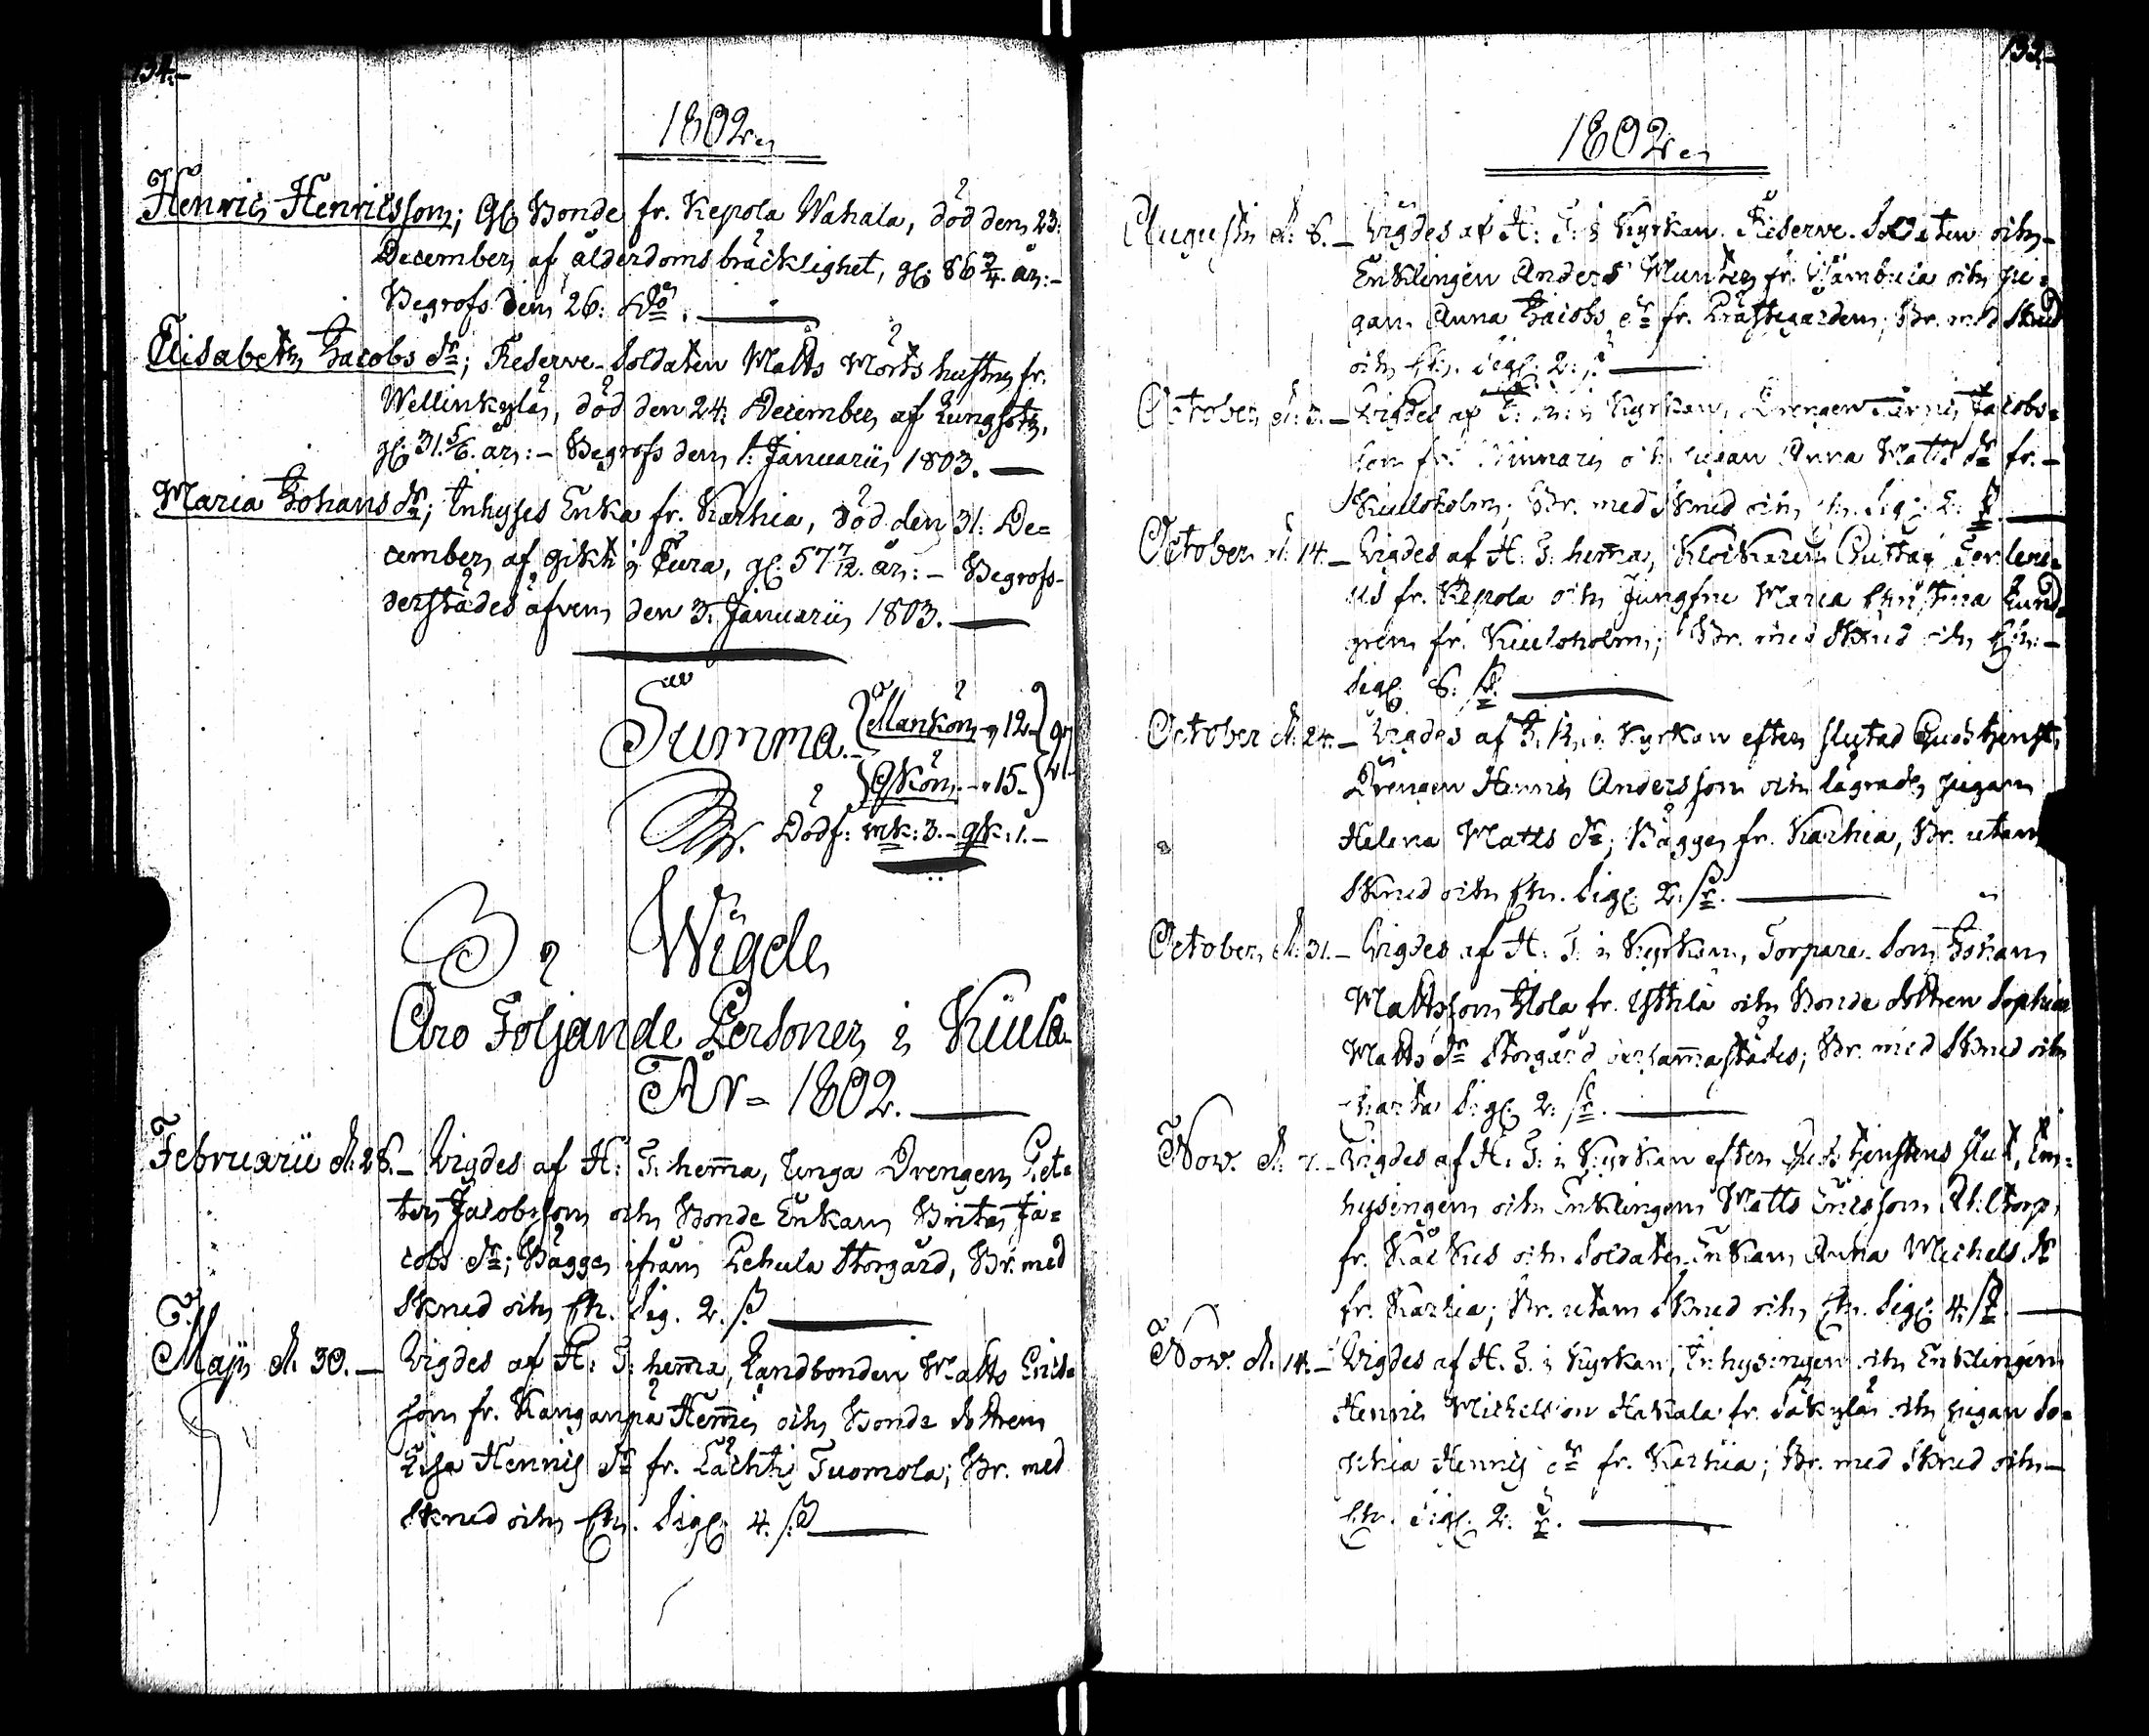 134.
1802.
Henric Henricsson; Gl. Bonde fr. Kepola Wahala, död den 23.
December, af ålderdoms bräcklighet, gl. 86 3/4. år:-
Begrofs den 26. do.
Elisabeth Jacobs dr; Reserve-Soldaten Matts Mörts hustru fr.
Wellinkylä, död den 24. December, af Lungsot,
gl. 31. 5/6. år:- Begrofs den 1. Januarii 1803.
Maria Johans dr; Inhyses Enka fr. Karhia, död den 31. De=
cember, af gikt i Eura, gl. 57 7/12. år:- Begrofs-
derstädes äfven den 3. Januarii 1803.
Summa. Mankön 12.
Qkön. 15.
Dödf: mk: 3. qk: 1.
Wigde
Äro Följande Personer i Kiula
År 1802.
Februarii d. 28. Vigdes af H: T: hemma, Unga Drengen Pet=
ter Jacobsson och Bonde Enkan Brita Ja=
cobs dr; Bägge ifrån Lehula Storgård, Br. med
Skrud och Ch. Sig. 2. s.
Maji d. 30. Vigdes af H: T: hemma, Landbonden Matts Erics=
son fr. Kanganpä och Bonde dottren
Lisa Henrics dr fr. Lächti Tuomola; Br. med
Skrud och Ch. Sigl. 4. s.
1802.
Augusti d. 8. Vigdes af H: T: i Kyrkan. Reserve-Soldaten och
Enklingen Anders Munter fr. och pi=
gan Anna Jacobs dr fr. Prästegården; Br. med Skrud
och Ch. Sigl. 2. s.
October d. 3. Vigdes af i Kyrkan, Drengen Jacobs=
son fr. och pigan Anna Matts dr fr.
Kiuloholm; Br. med Skrud och Ch. Sigl. 2.
October d. 14. Vigdes af H: T: hemma, Klockaren Gustaf
us fr. Kepola och Jungfru Maria Christina Lund=
gren fr. Kiuloholm; Br. med Skrud och Ch.
Sigl. 8. s.
October d. 24. Vigdes af i Kyrkan efter slutad Gudstjenst,
Drengen Henric Andersson och lägrade pigan
Helena Matts dr; Bägge fr. Karhia, Br. utan
Skrud och Ch. Sigl. 2. sr.
October d. 31. Vigdes af H: T: i Kyrkan, Torpare-Son Johan
Mattsson fr. Yttilä och Bonde dottren Sophia
Matts dr Storgård dersammastädes; Br. med Skrud och
Charta Sigl. 2. sr.
Nov. d. 7. Vigdes af H: T: i Kyrkan efter Gudstjenstens slut, In=
hysingen och Enklingen Matts Ericsson
fr. och Soldate-Enkan Anna Michels dr
fr. Karhia; Br. utan Skrud och Ch. Sigl. 4. sr.
Nov. d. 14. Vigdes af H: T: i Kyrkan, Inhysingen och Enklingen
Henric Michelsson Hakala fr. Säkylä och pigan So=
phia Henrics dr fr. Karhia; Br. med Skrud och
Ch. Sigl. 2.